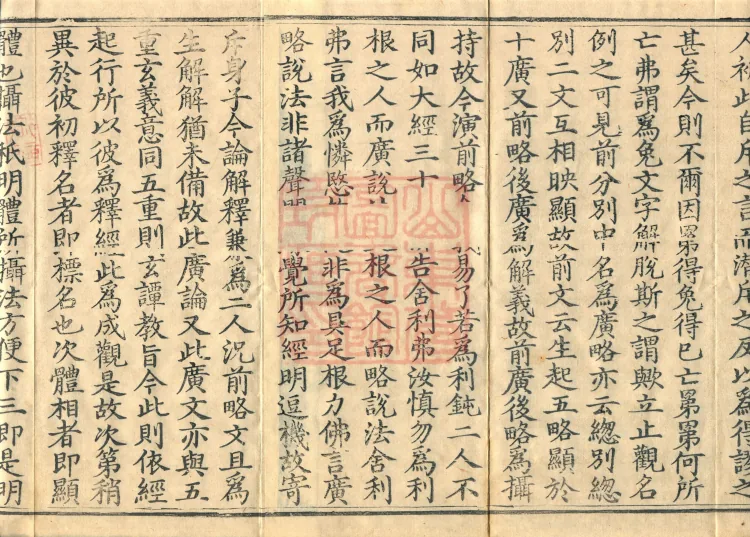 之言而
甚矣今則不爾因罤得兔得已亡罤罤何所
亡弗謂爲兔文字解脫斯之謂歟立止觀名
例之可見前分別中名爲廣略亦云緫別緫
別二文互相映顯故前文云生起五略顯於
十廣又前略後廣爲解義故前廣後略爲攝
持故今演前略易了若爲利鈍二人不
同如大經三十告舍利弗汝慎勿爲利
根之人而廣說根之人而略說法舍利
弗言我爲憐愍非爲具足根力佛言廣
略說法非諸聲覺所知經明逗機故寄
斥身子今論解釋兼爲二人況前略文且爲
生解解猶未備故此廣論又此廣文亦與五
重玄義意同五重則玄譚教旨今此則依經
起行所以彼爲釋經此爲成觀是故次第稍
異於彼初釋名者即標名也次體相者即顯
體也攝法秖明體所攝法方便下三即是明